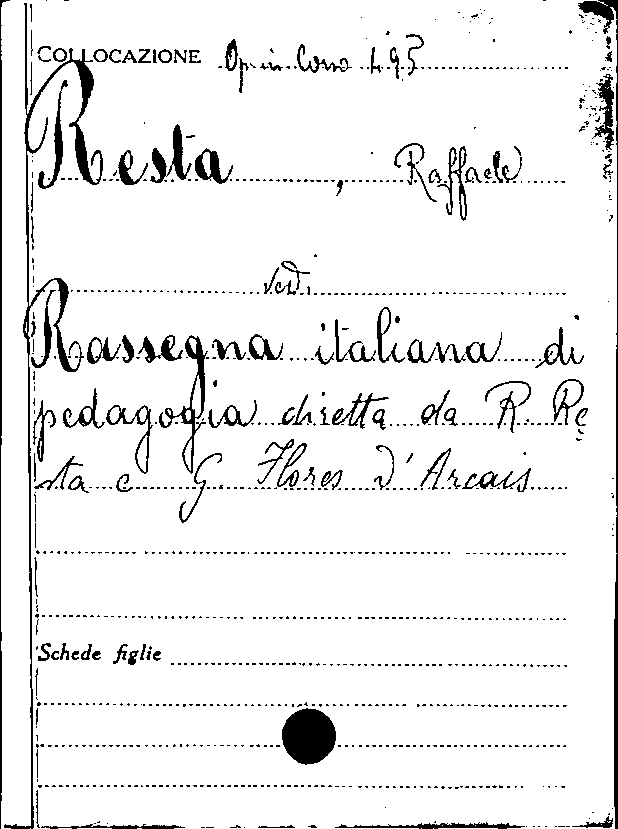 COLLOCAZIONE Op. in Corso 495
Resta, Raffaele
Ved.
Rassegna italiana di
pedagogia diretta da R. Re
sta e G. Flores d'Arcais
Schede figlie